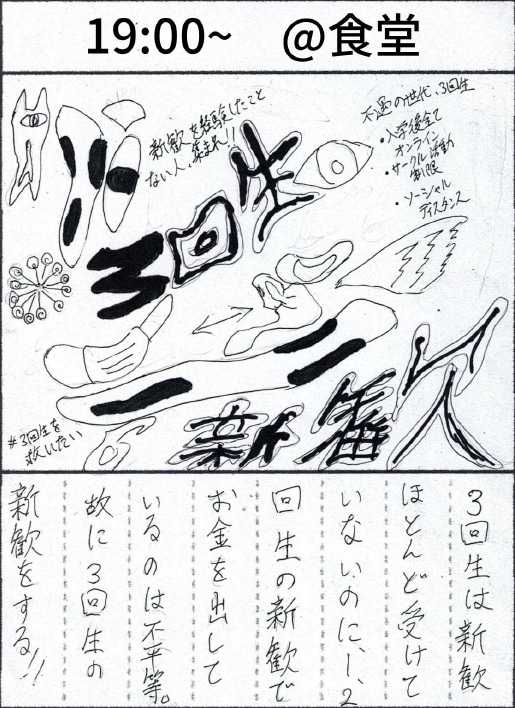 19:00~ @食堂
新歓を経験したこと
ない人、集まれ!!
不遇の世代、3回生
・入学後全て
オンライン
・サークル活動
制限
・ソーシャル
ディスタンス
3回生
新歓
#3回生を
救いたい
3回生は新歓
ほとんど受けて
いないのに、1、2
回生の新歓で
お金を出して
いるのは不平等。
故に3回生の
新歓をする!!